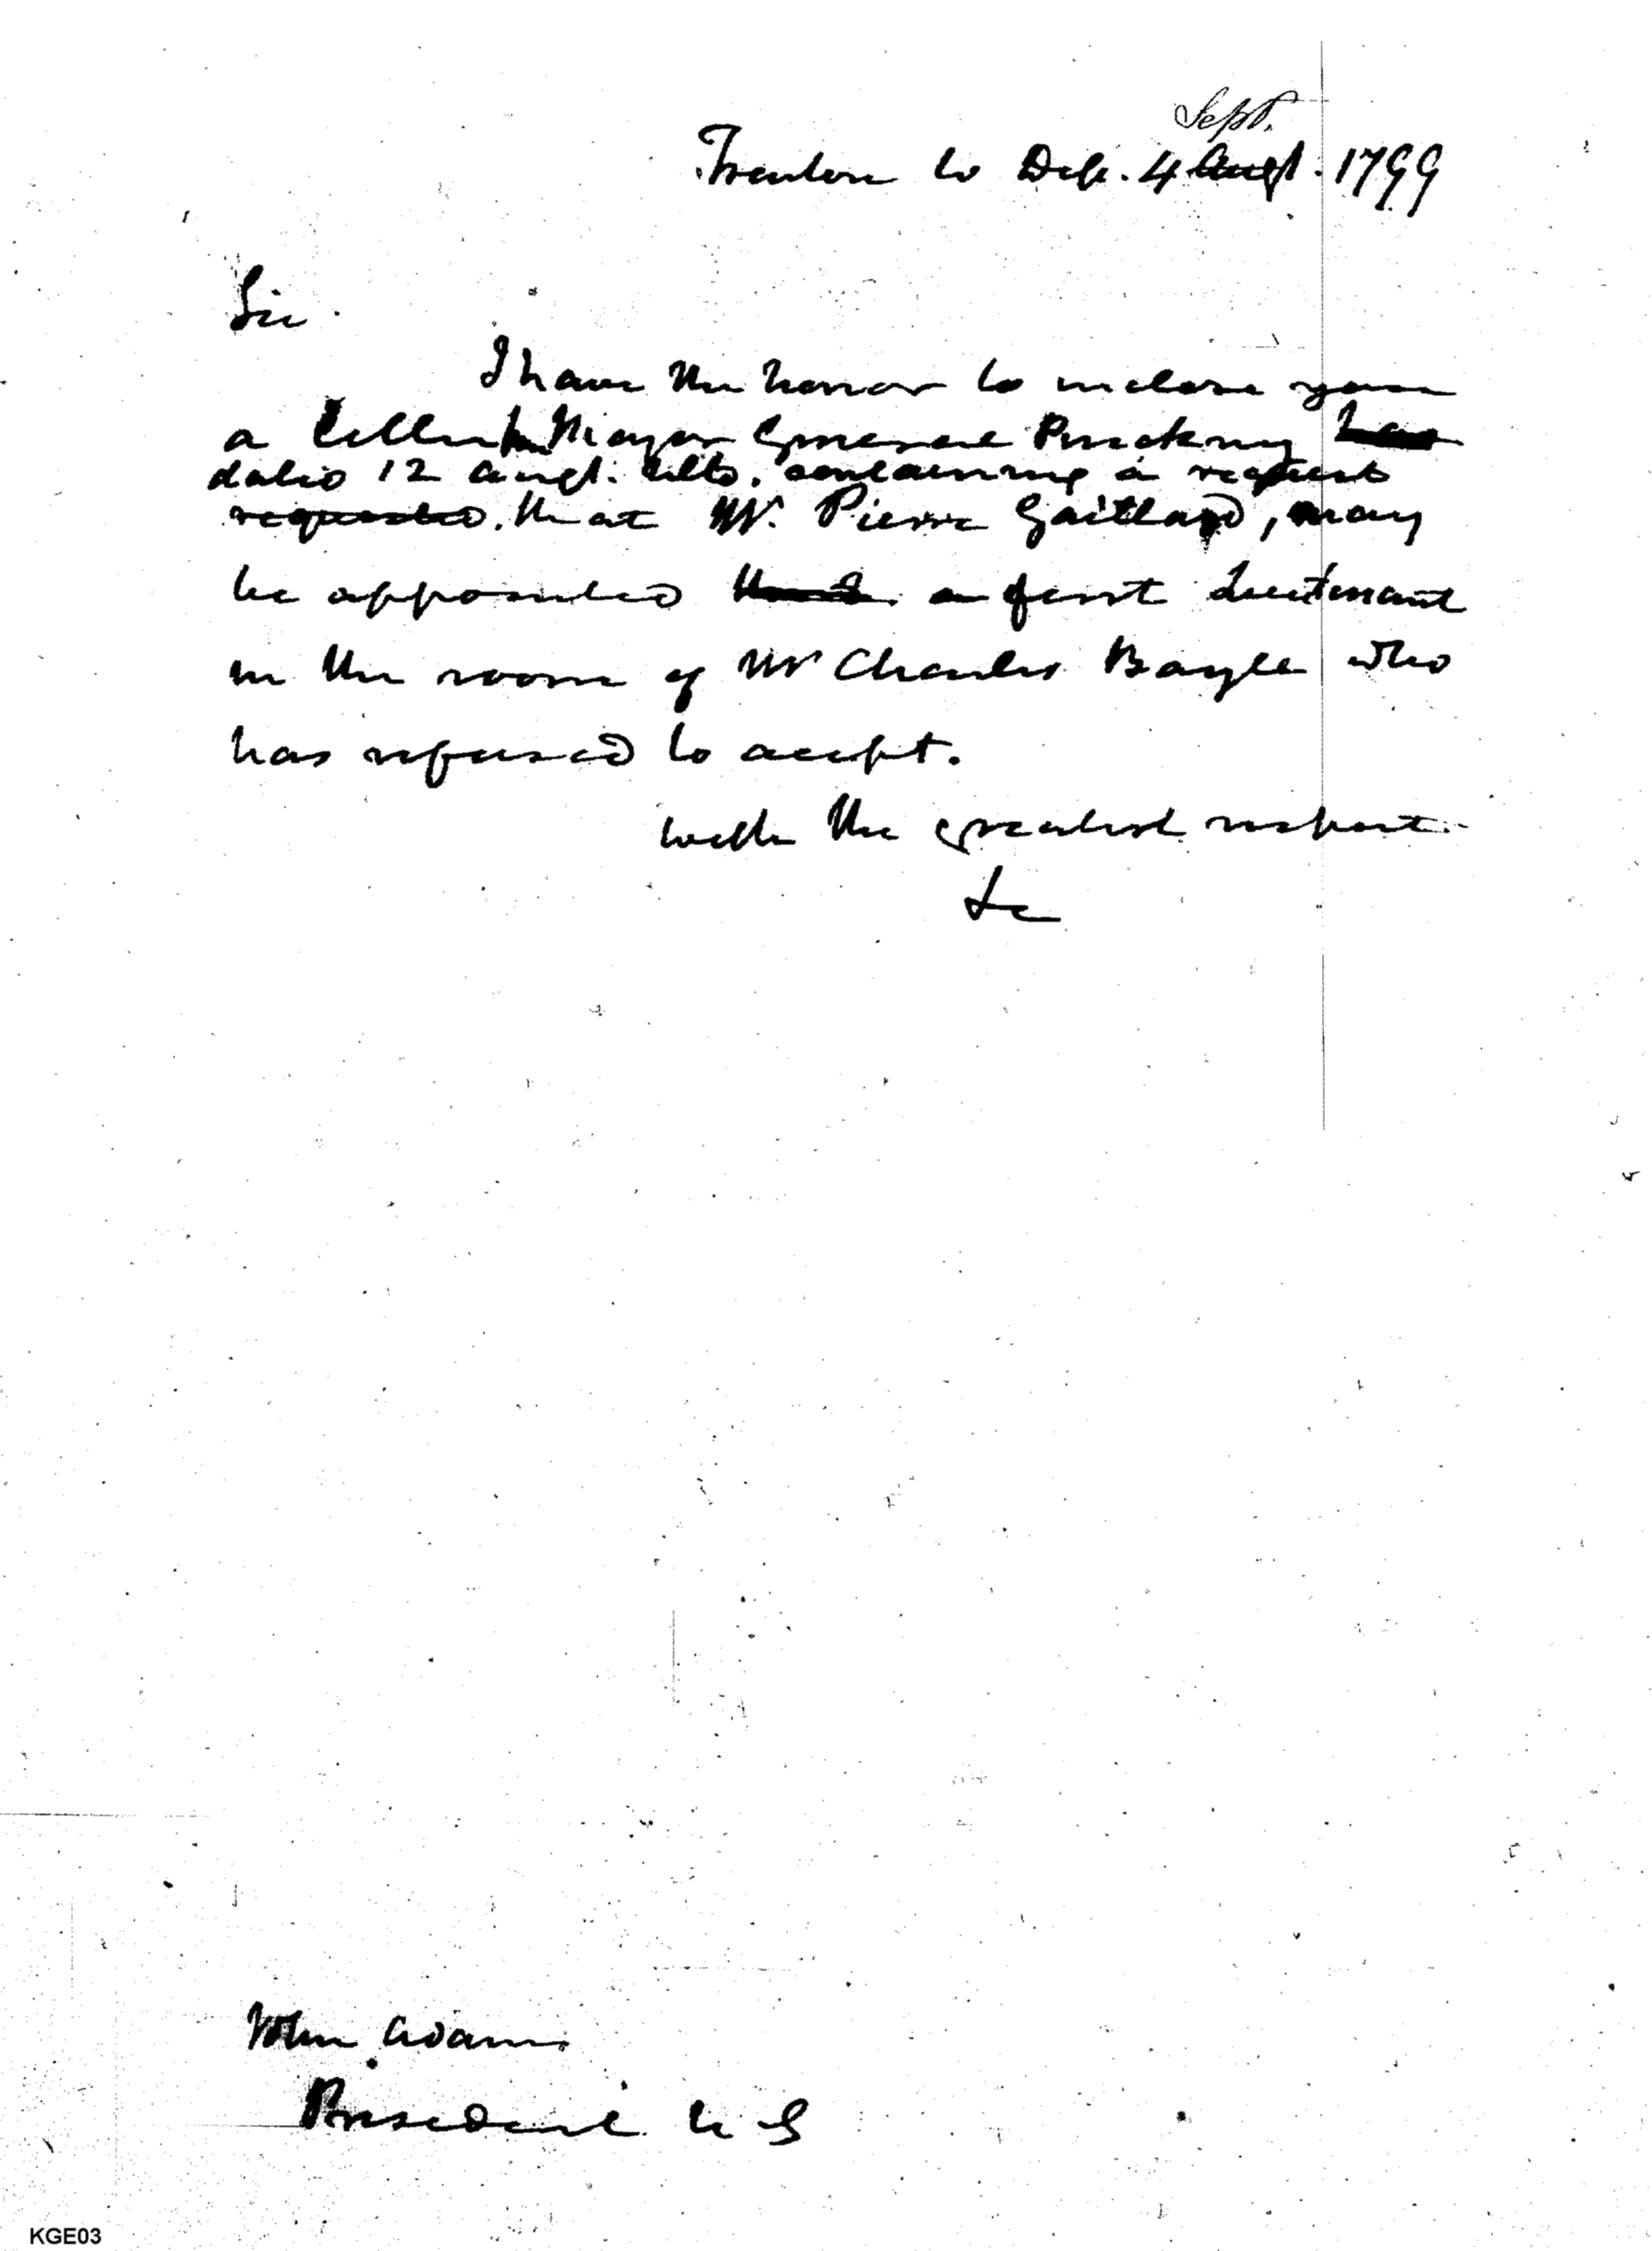 Sept.
Trenton W Dep. 4 Augt. 1799
Sir.
I have the honor to inclose you
a letter fm Major General Pinckney has
dated 12 Augt. ulto. containing a request
requested. that Mr. Pierre Gaillard, may
be appointed a first Lieutenant
in the room of Mr Charles Bayle who
has refused to accept.
with the greatest respect.
&c
John Adams
President U S
KGE03